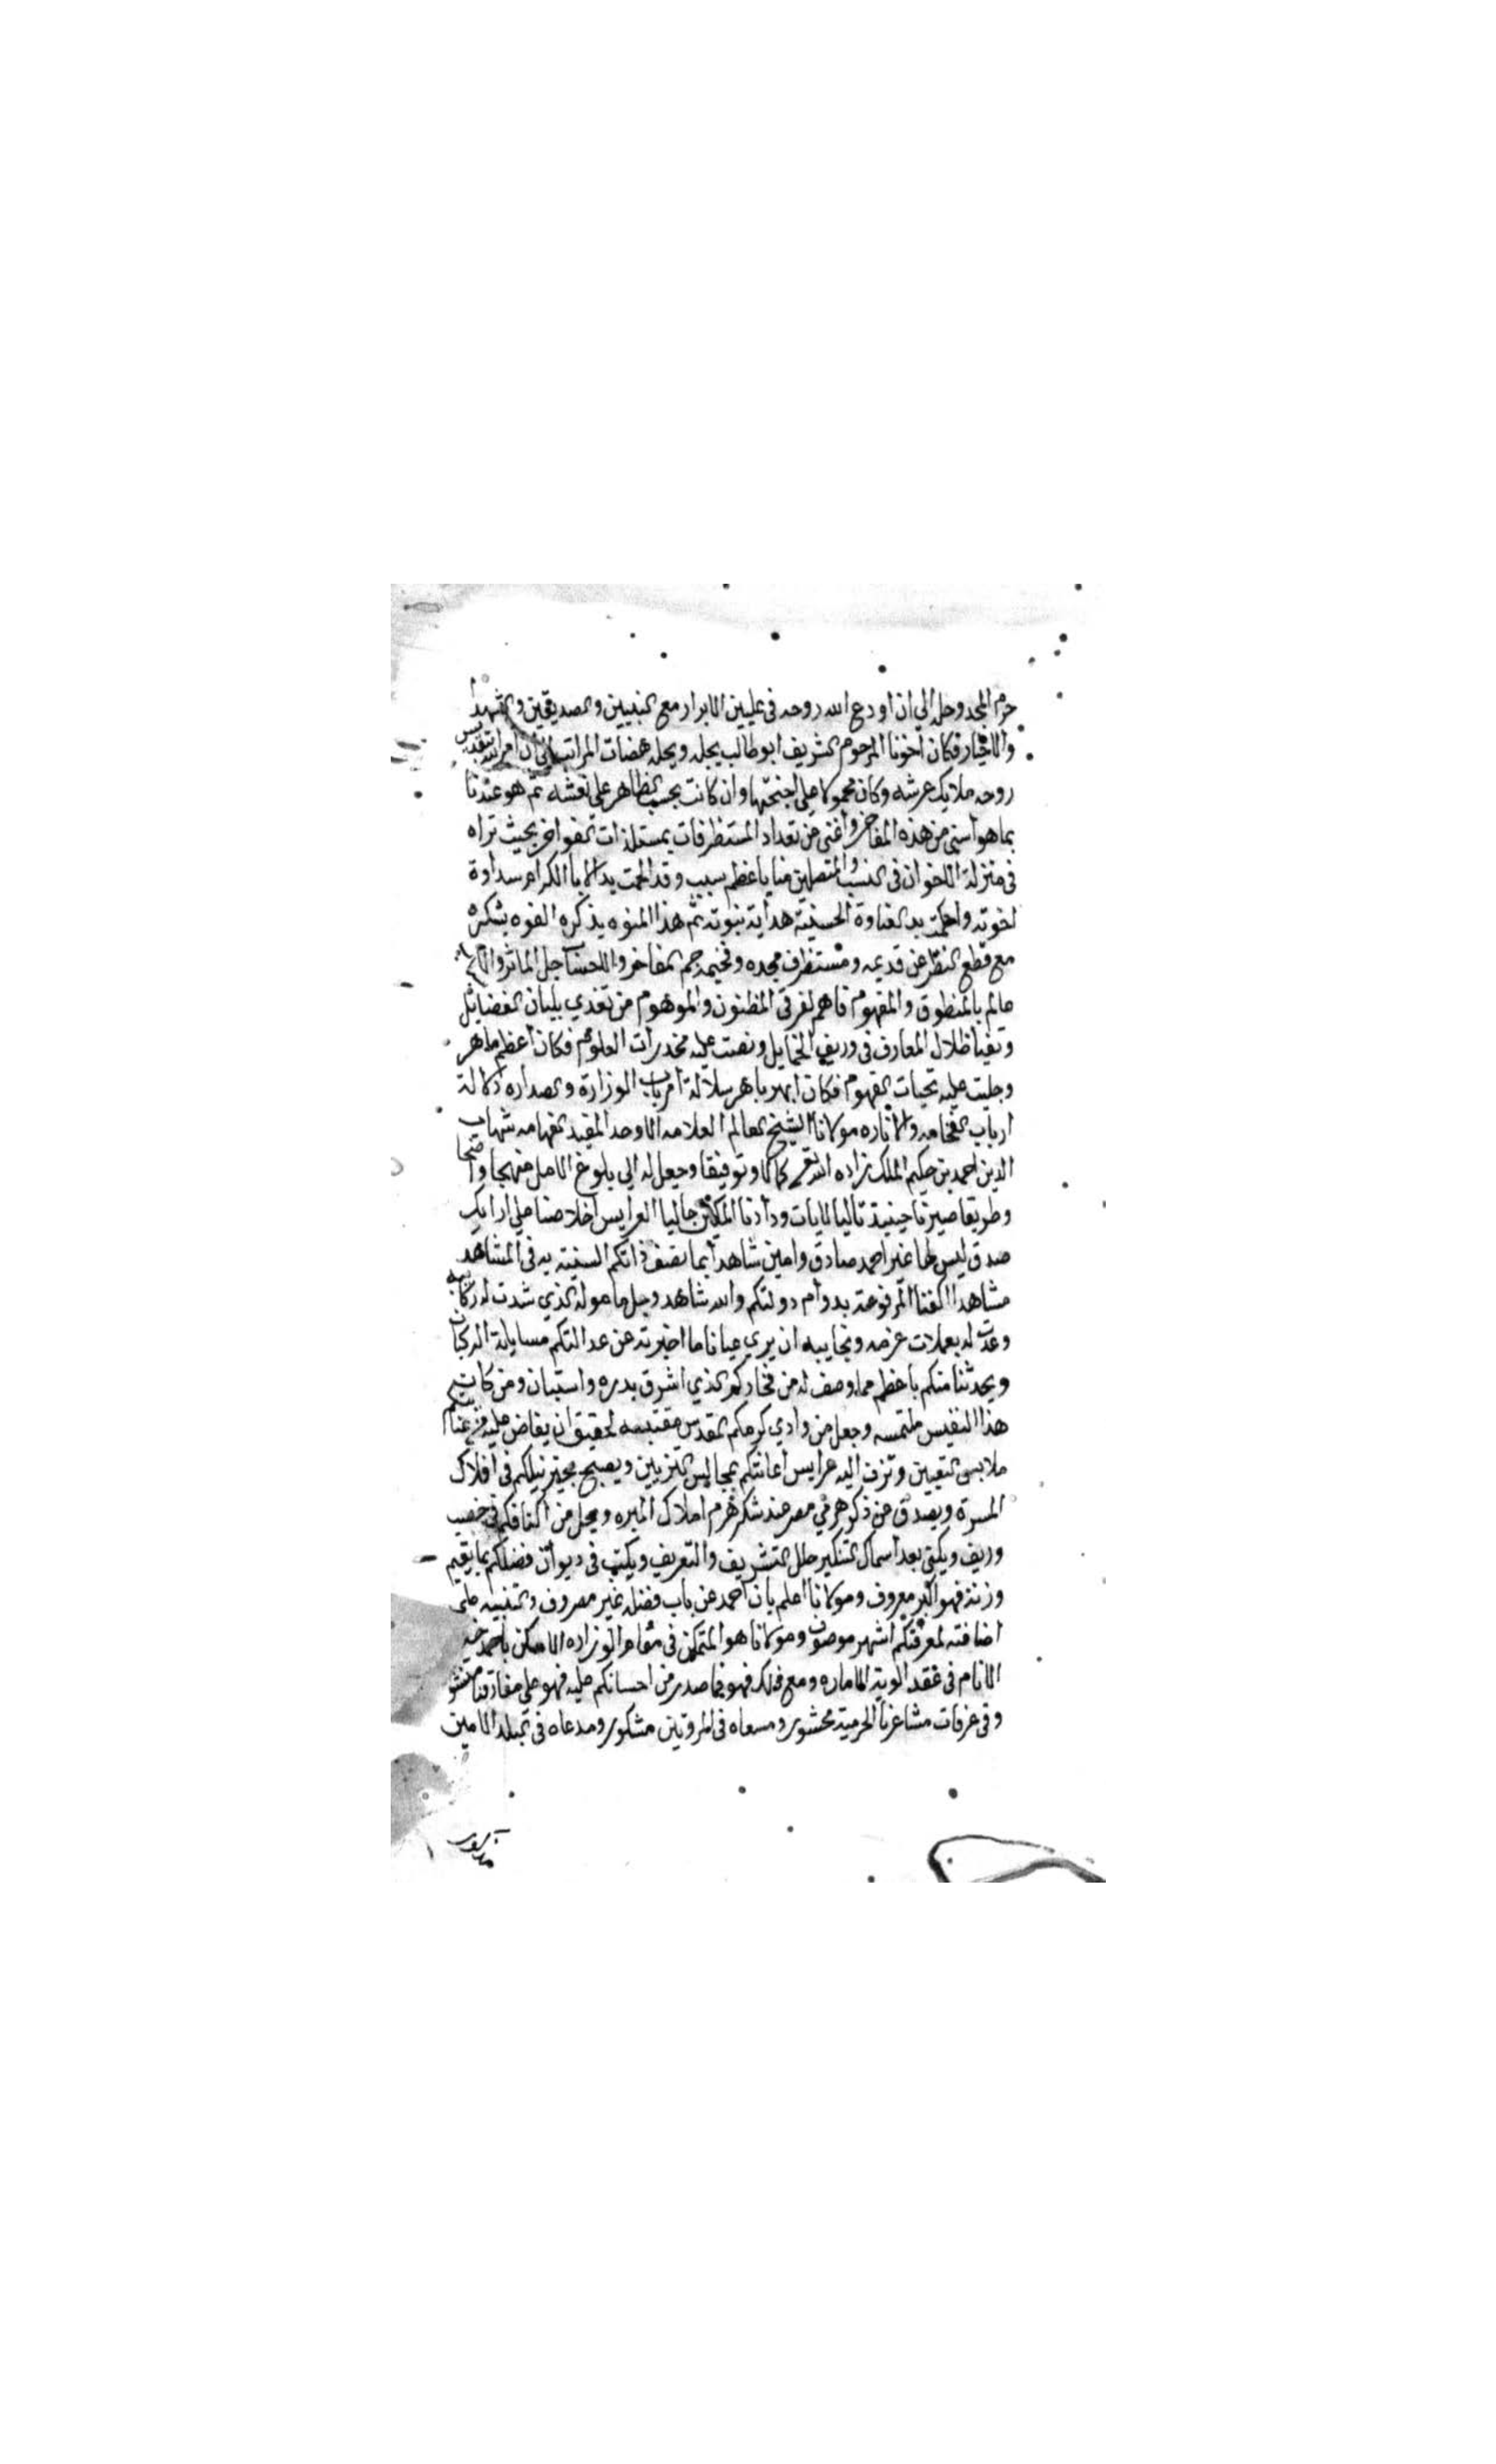 حرم المجد وحله الي ان اودع الله روحه في عليين الابرار مع النبيين والصديقين والشهدا
والاخيار فكان اخونا المرحوم الشريف ابو طالب يجله ويحله هضات المراتب الي ان امر الله بتقديس
روحه ملايك عرشه وكان محمولا علي اجنحتها وان كانت بحسب الظاهر علي نعشه ثم هو عندنا
بما هو اسني من هذه المفاخر واغني من تعداد المستظرفات بمستلذات الفواخر بحيث تراه
في منزلة الاخوان في النسب والمتصلين منا باعظم سبب وقد الحمت يد الاباء الكرام سداوة
اخوته واحكمت يد الغناوة الحسنية هداية بنوته ثم هذا المنوه بذكره الفوه بشكره
مع قطع النظر عن قديمه ومستظرف مجده وفخيمه جم المفاخر والاحساب جل الماثر
عالم بالمنطوق والمفهوم فاهم لفرق المظنون والموهوم من تغذي بلبان الفضايل
وتفيا ظلال المعارف في وريف الخمايل ونصت عليه مخدرات العلوم فكان اعظم ماهر
وجليت عليه تحيات الفهوم فكان ابهر باهر سلالة ارباب الوزارة والصداره
ارباب الفخامه والاناره مولانا الشيخ العالم العلامه الاوحد المفيد الفهامه شهاب
الدين احمد بن حكيم الملك زاده الله تعالي كمالا وتوفيقا وجعل له الي بلوغ الامل منهجا واضحا
وطريقا صيرنا حينيذ تاليا لايات ودادنا المكين جاليا العرايس اخلاصنا علي ارايك
صدق ليس لها غير احمد صادق وامين شاهدا بما نصف ذاتكم السنية به في المشاهد
مشاهدا اكفنا المرفوعة بدوام دولتكم والله شاهد وجل ماموله الذي شدت له ركايبه
وعدت له يعملات عزمه ونجايبه ان يري عيانا ما اخبرته عن عدالتكم مسايلة الركبان
ويحدثنا منكم باعظم مما وصف له من فخاركم الذي اشرق بدره واستبان ومن كانت
هذا النفيس ملتمسه وجعل من وادي كرمكم المقدس مقتبسه لحقيق ان يفاض عليه من
ملابس التعيين وتزف اليه عرايس اعانتكم بمجاليس التزيين ويصبح بحيزنيلكم في افلاك
المسرة ويصدق عن ذكر هرمي مصر عند شكر هرم املاك المبره ويحل من اكنافكم في خصيب
وريف ويكتي بعد اسمال التنكير حلل التشريف والتعريف ويكتب في ديوان فضلكم بما يقيم
وزنة فهو البر معروف ومولانا اعلم بان احمد عن باب فضله غير مصروف والتنبيه علي
اضافته لمعرفتكم اشهر موصوف ومولانا هو المتمكن في مقام الوزاره الامكن باحمد
الانام في عقد الوية الاماره ومع ذلك فهو فما صدر من احسانكم عليه فهو علي مفارقنا منشو
وفي عرفات مشاعرنا الحرمية محشور ومسعاه في المروتين مشكور ومدعاه في البلد الامين
مذكور